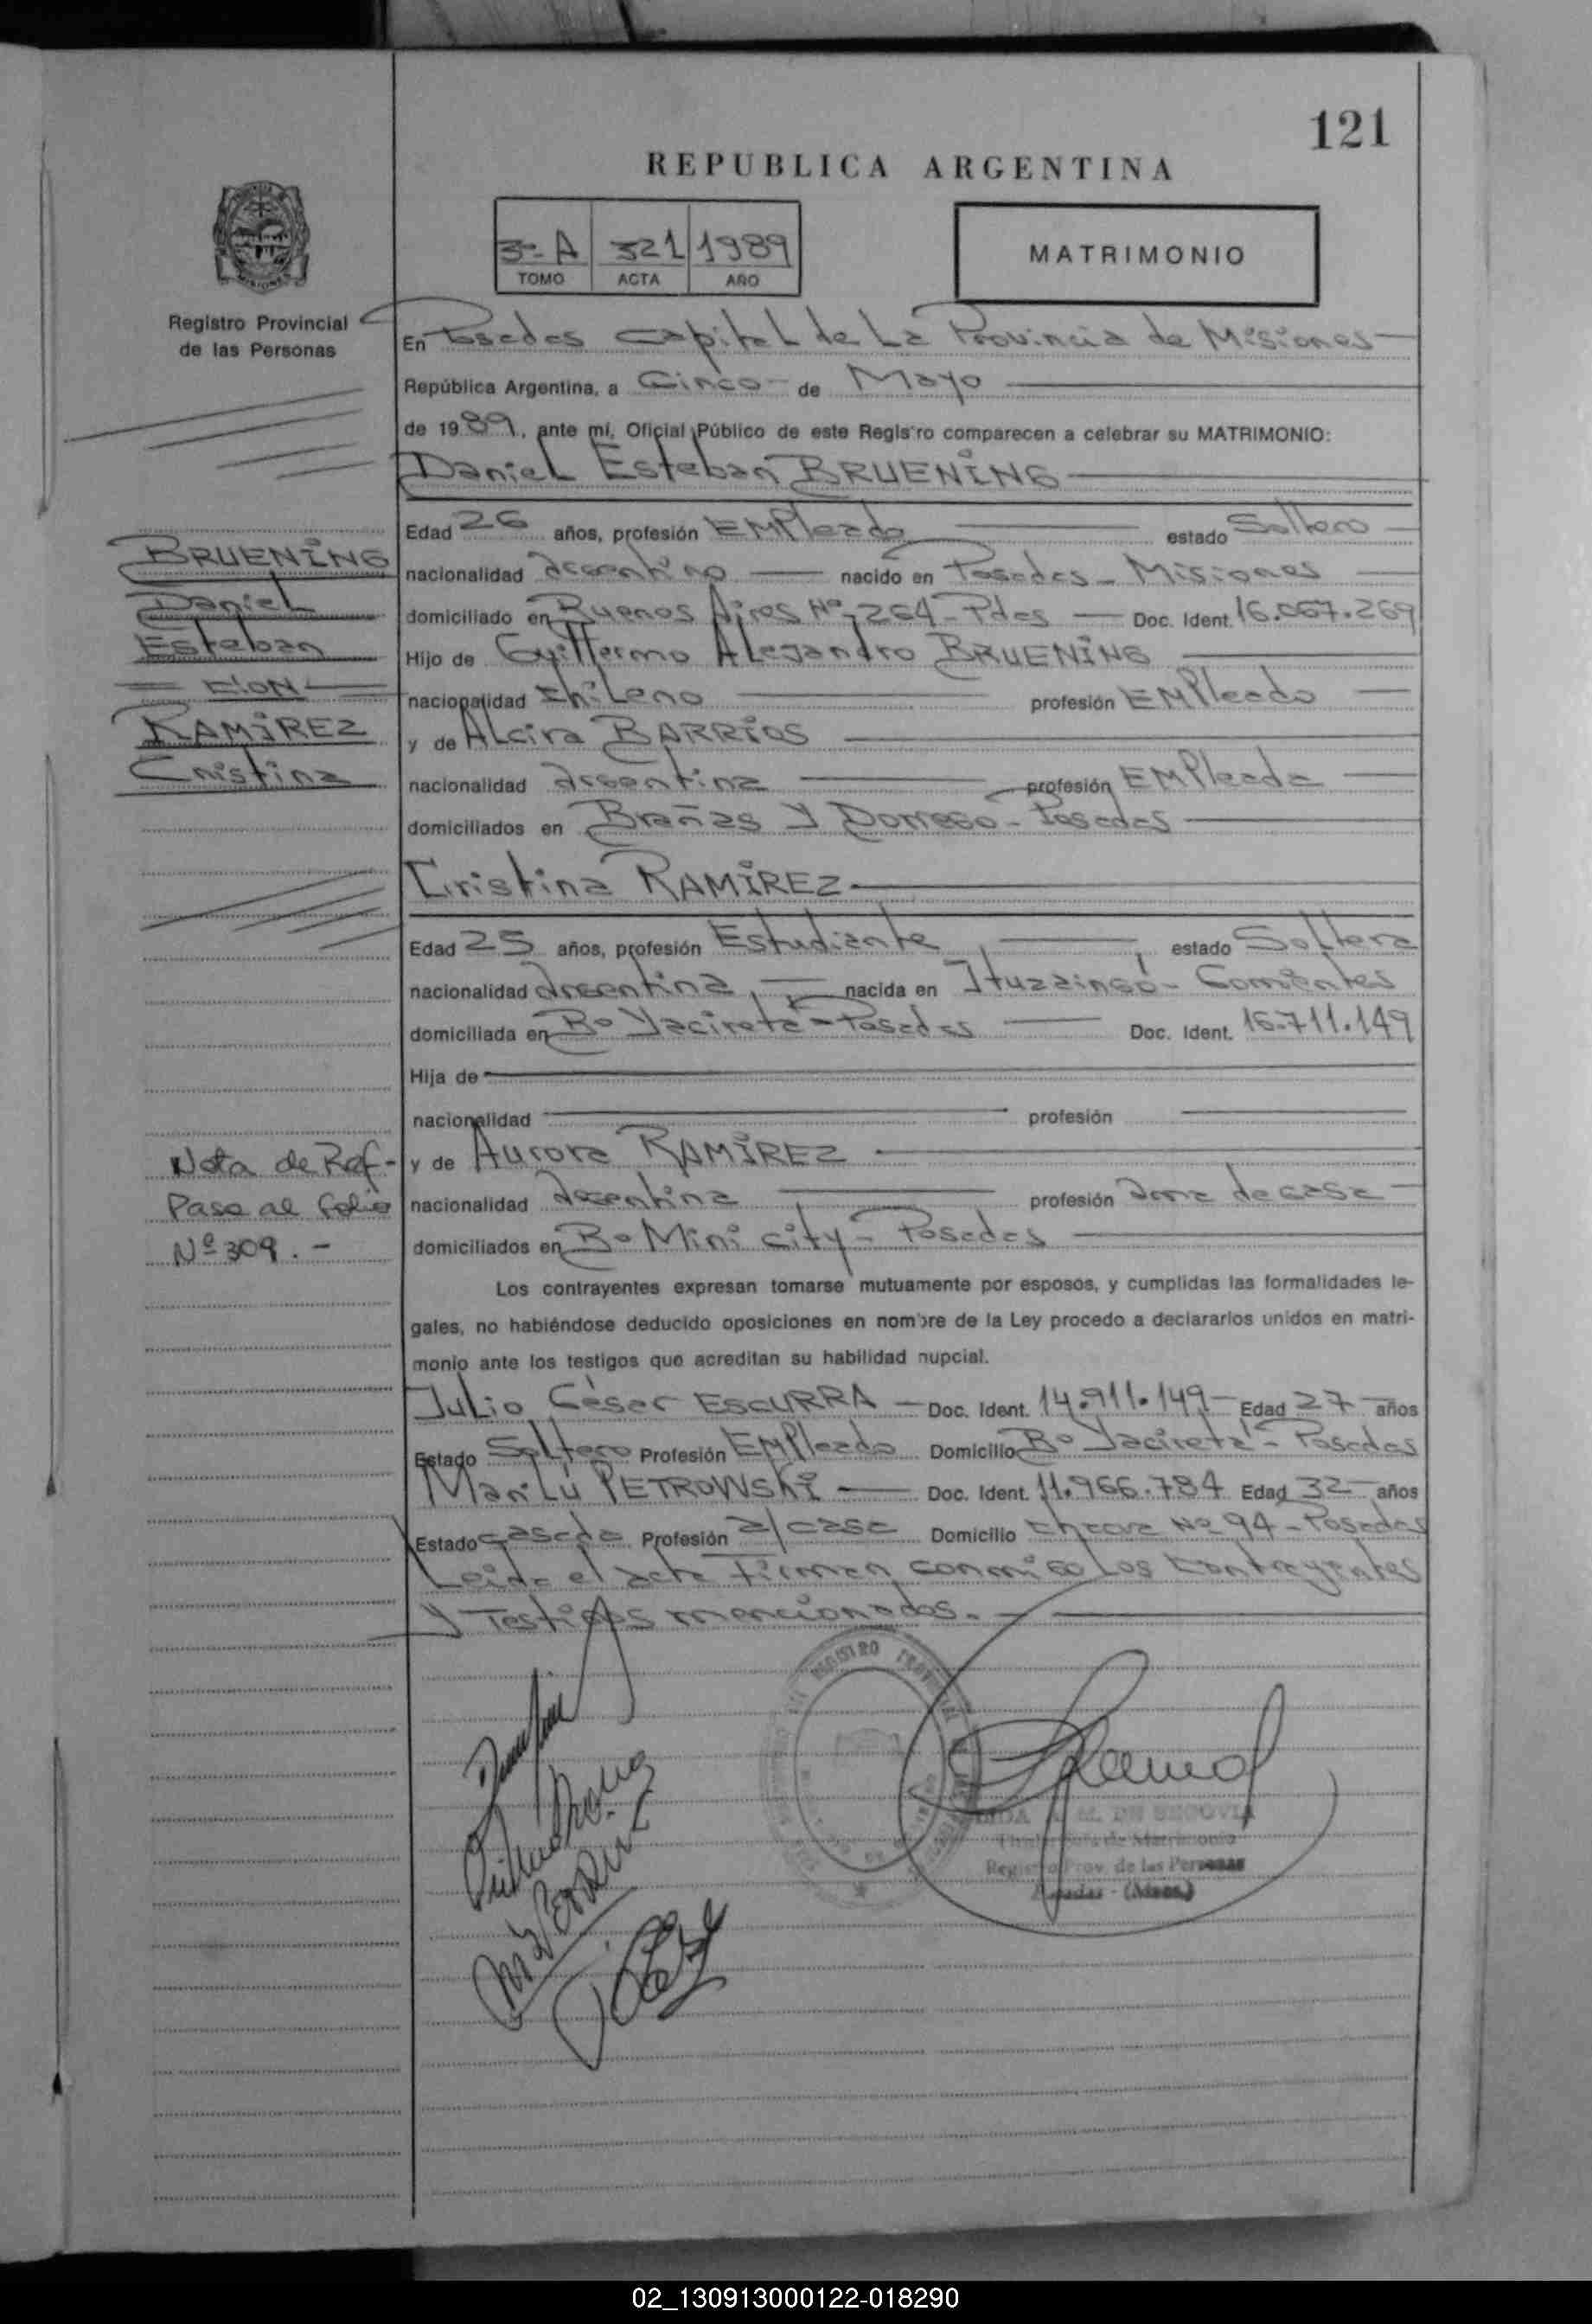 121
REPUBLICA ARGENTINA
3-A 321 1989
TOMO ACTA AÑO
MATRIMONIO
Registro Provincial
de las Personas
En Posadas Capital de La Provincia de Misiones
República Argentina, a Cinco de Mayo
de 1989, ante mí, Oficial Público de este Registro comparecen a celebrar su MATRIMONIO:
Daniel Esteban BRUENING
Edad 26 años, profesión EMPleado estado Soltero
nacionalidad argentino nacido en Posadas - Misiones
domiciliado en Buenos Aires Nº 264 - Pdas Doc. Ident. 16.067.269
Hijo de Guillermo Alejandro BRUENING
nacionalidad chileno profesión EMPleado
y de Alcira BARRIOS
nacionalidad argentina profesión EMPleada
domiciliados en Brañas y Dorrego - Posadas
Cristina RAMIREZ
Edad 25 años, profesión Estudiante estado Soltera
nacionalidad argentina nacida en Ituzaingó - Corrientes
domiciliada en Bº Yacireta - Posadas Doc. Ident. 16.711.149
Hija de
nacionalidad profesión
y de Aurora RAMIREZ
nacionalidad argentina profesión ama de casa
domiciliados en Bº Mini city - Posadas
Los contrayentes expresan tomarse mutuamente por esposos, y cumplidas las formalidades le-
gales, no habiéndose deducido oposiciones en nombre de la Ley procedo a declararlos unidos en matri-
monio ante los testigos que acreditan su habilidad nupcial.
Julio César ESCURRA - Doc. Ident. 14.911.149 - Edad 27 años
Estado Soltero Profesión EMPleado Domicilio Bº Yacireta - Posadas
Marilú PETROWSKI - Doc. Ident. 11.966.784 Edad 32 años
Estado casada Profesión a/casa Domicilio Chacra Nº 94 - Posadas
Leida el acta Firman conmigo Los contrayentes
y Testigos mencionados.
BRUENING
Daniel
Esteban
= CON =
RAMIREZ
Cristina
Nota de Ref-
Pasa al folio
Nº 309.-
REGISTRO
M. DE SEGOVIA
de Matrimonio
Registro Prov. de las Personas
Posadas - (Mnes.)
02_130913000122-018290